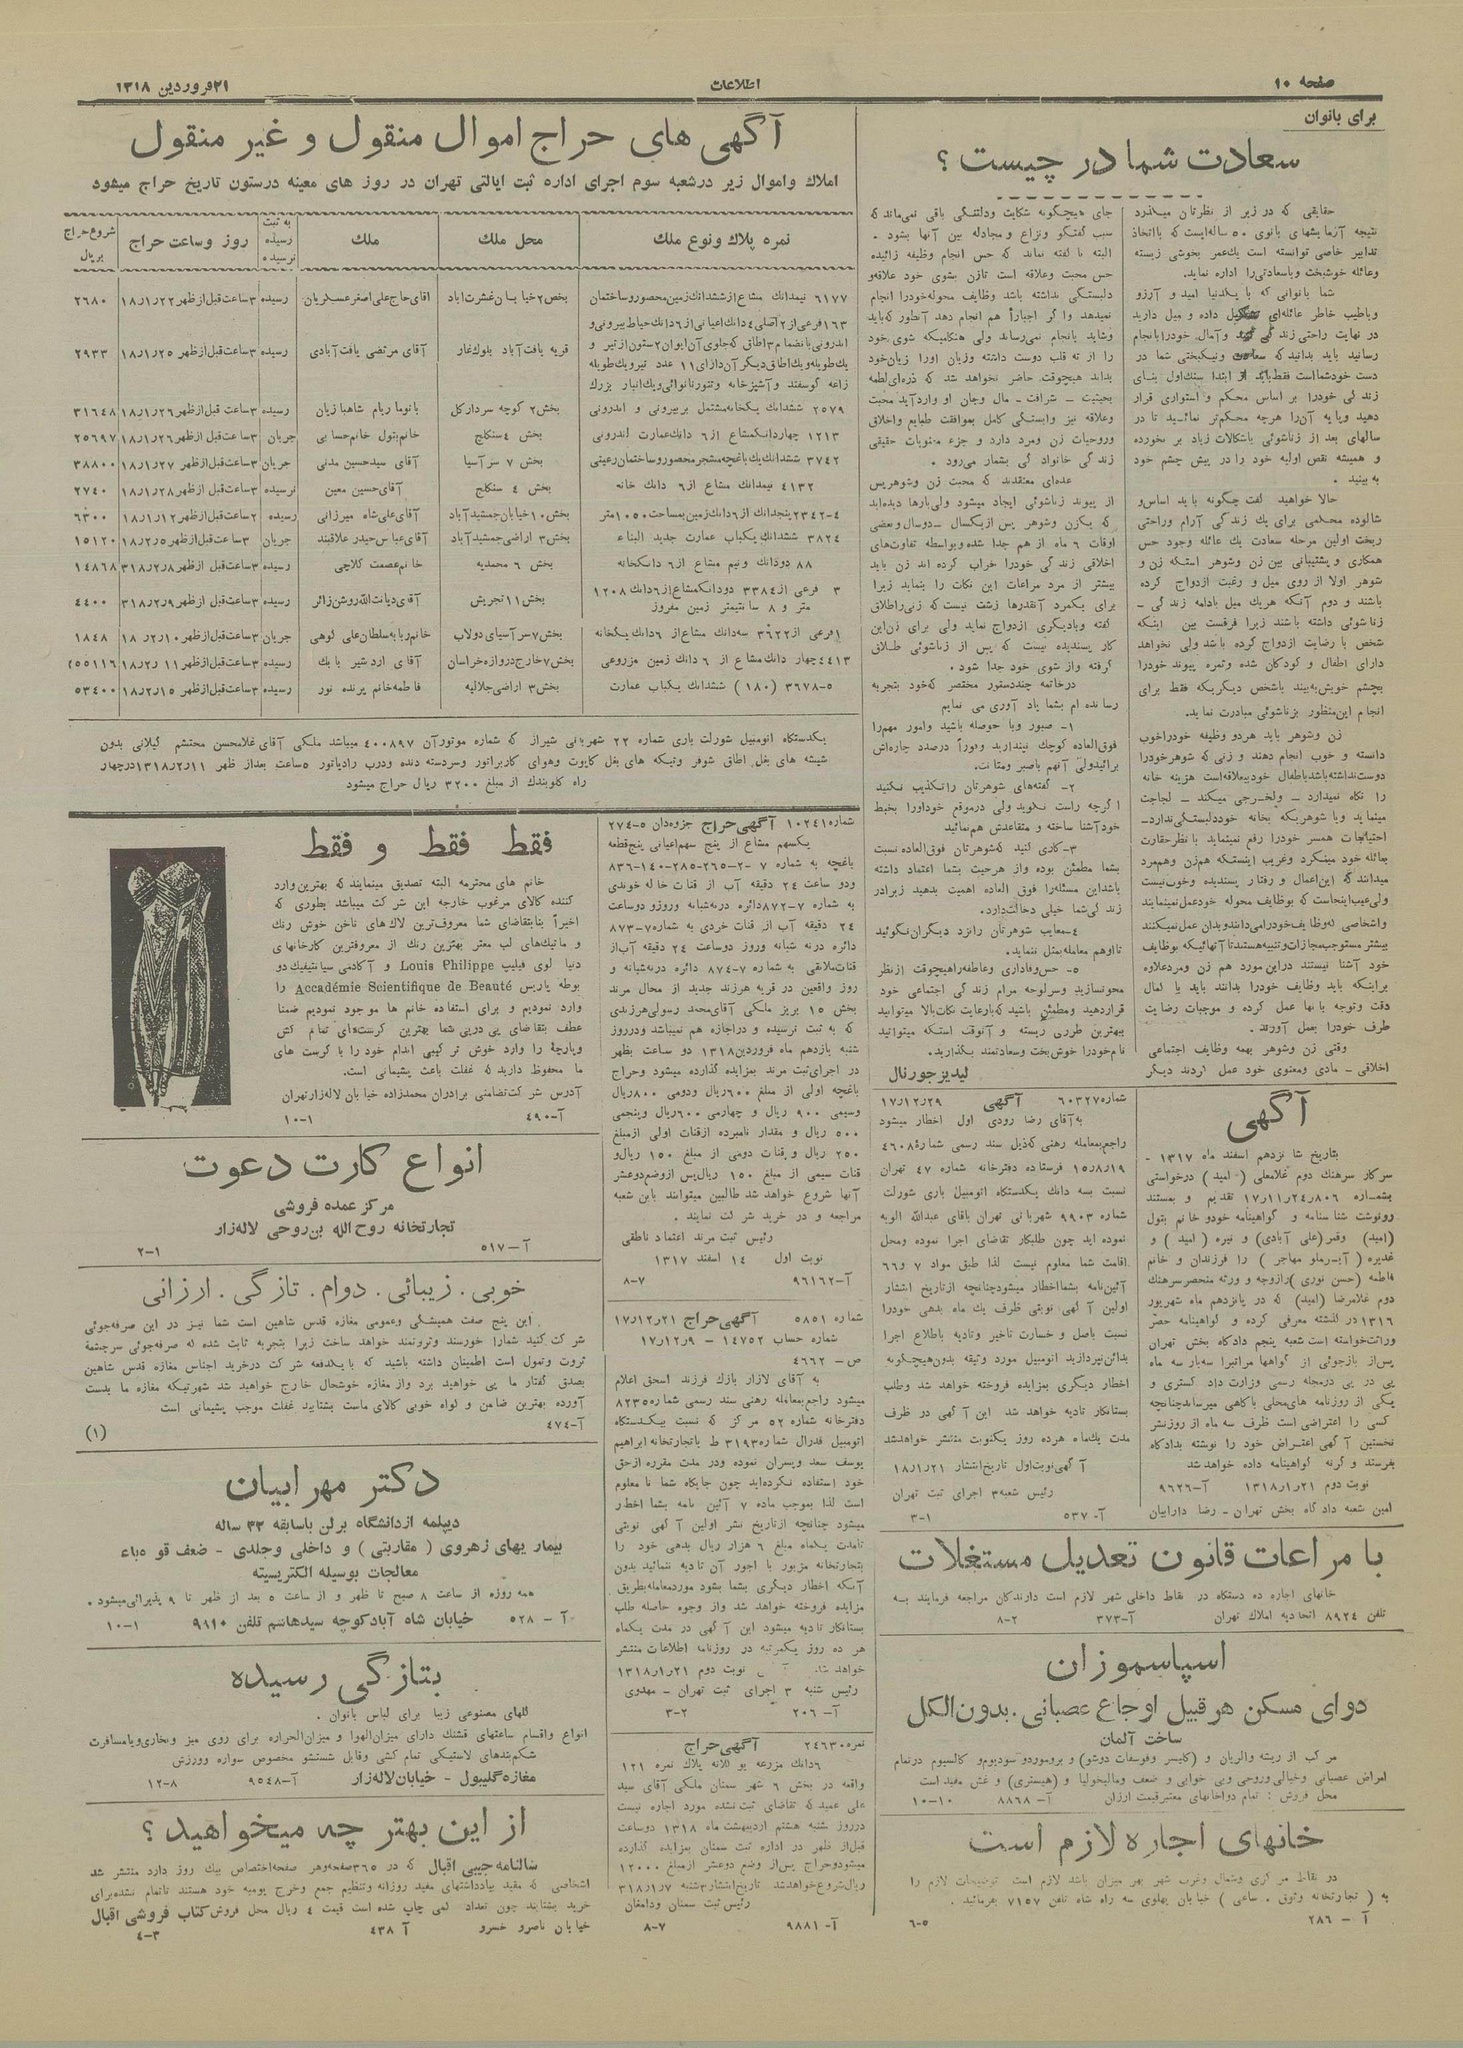 صفحه ۱۰
اطلاعات
۲۱ فروردین ۱۳۱۸
برای بانوان
سعادت شما در چیست ؟
حقایقی که در زیر از نظرتان میگذرد
نتیجه آزمایشهای بانوی ۵۰ ساله‌ایست که با اتخاذ
تدابیر خاصی توانسته است یك عمر بخوشی زیسته
وعائله خوشبخت وباسعادتی را اداره نماید.
شما بانوانی که با یك دنیا امید و آرزو
در نهایت راحتی زندگی
رسانید باید بدانید که سعادت ونیکبختی شما در
دست خود شما است فقط باید از ابتدا سنك اول بنای
زندگی خودرا بر اساس محکم و استواری قرار
دهید وپایه آن‌را هرچه محکم‌تر نمائید تا در
سالهای بعد از زناشوئی باشکالات زیاد بر نخورده
و همیشه نقص اولیه خود را در پیش چشم خود
به بینید .
حالا خواهید گفت چگونه باید اساس و
شالوده محکمی برای یك زندگی آرام وراحتی
ریخت اولین مرحله سعادت یك عائله وجود حس
همکاری و پشتیبانی بین زن وشوهر استکه زن و
شوهر اولا از روی میل و رغبت ازدواج کرده
باشند و دوم آنکه هریك میل بادامه زندگی -
زناشوئی داشته باشند زیرا فرقست بین اینکه
شخص با رضایت ازدواج کرده باشد ولی نخواهد
دارای اطفال و کودکان شده وثمره پیوند خودرا
بچشم خویش به‌بیند باشخص دیگریکه فقط برای
انجام این منظور بزناشوئی مبادرت نماید.
زن وشوهر باید هردو وظیفه خودرا خوب
دانسته و خوب انجام دهند و زنی که شوهر خودرا
دوست نداشته باشد باطفال خود بیعلاقه است هزینه خانه
را نگاه نمیدارد – ولخرجی میکند – لجاجت
مینماید ویا شوهریکه بخانه خود دلبستگی ندارد–
احتیاجات همسر خودرا رفع نمینماید با نظر حقارت
بعائله خود مینگرد وغریب اینستکه هم زن وهم مرد
میدانند که این اعمال و رفتار پسندیده وخوب نیست
ولی عیب اینجاست که بوظایف محوله خود عمل نمینمایند
واشخاصی که وظایف خودرا میدانند وبدان عمل نمیکنند
بیشتر مستوجب مجازات وتنبیه هستند تا آنهائیکه بوظایف
خود آشنا نیستند دراین مورد هم زن ومرد علاوه
براینکه باید وظایف خودرا بدانند باید با کمال
دقت وتوجه با نها عمل کرده و موجبات رضایت
طرف خودرا بعمل آورند.
وقتی زن وشوهر بهمه وظایف اجتماعی
اخلاقی – مادی ومعنوی خود عمل کردند دیگر
جای هیچگونه شکایت ودلتنگی باقی نمی‌ماند که
سبب گفتگو ونزاع و مجادله بین آنها بشود .
البته نا گفته نماند که حس انجام وظیفه زائیده
حس محبت وعلاقه است تا زن بشوی خود علاقه و
دلبستگی نداشته باشد وظایف محوله خودرا انجام
نمیدهد وا گر اجباراً هم انجام دهد آنطور که باید
وشاید بانجام نمی‌رساند ولی هنگامیکه شوی خود
را از ته قلب دوست داشته وزیان اورا زیان خود
بداند هیچوقت حاضر نخواهد شد که ذره‌ای لطمه
بحیثیت – شرافت – مال وجان او وارد آید محبت
وعلاقه نیز وابستگی کامل بموافقت طبایع واخلاق
وروحیات زن ومرد دارد و جزء معنویات حقیقی
زندگی خانواد گی بشمار می‌رود .
عده‌ای معتقدند که محبت زن وشوهر پس
از پیوند زناشوئی ایجاد میشود ولی بارها دیده‌اند
که یکزن وشوهر پس از یکسال – دوسال وبعضی
اوقات ۶ ماه از هم جدا شده وبواسطه تفاوت‌های
اخلاقی زندگی خودرا خراب کرده اند زن باید
بیشتر از مرد مراعات این نکات را بنماید زیرا
برای یکمرد آنقدرها زشت نیست که زنی راطلاق
گفته وبادیگری ازدواج نماید ولی برای زن این
کار پسندیده نیست که پس از زناشوئی طلاق
گرفته واز شوی خود جدا شود .
درخاتمه چند دستور مختصر که خود بتجربه
رسانده ام بشما یاد آوری می نمایم
۱– صبور وبا حوصله باشید وامور مهم را
فوق العاده کوچك نپندارید وفوراً درصدد چاره‌اش
برائید ولی آنهم باصبر ومتانت.
۲– گفته‌های شوهرتان را تکذیب نکنید
اگرچه راست نگوید ولی درموقع خود اورا بخبط
خود آشنا ساخته و متقاعدش هم نمائید
۳–کاری کنید که شوهرتان فوق العاده نسبت
بشما مطمئن بوده واز هرحیث بشما اعتماد داشته
باشد این مسئله را فوق العاده اهمیت بدهید زیرا در
زندگی شما خیلی دخالت دارد.
۴–معایب شوهرتان رانزد دیگران نگوئید
تا اوهم معامله بمثل ننماید.
۵– حس وفاداری و عاطفه راهیچوقت از نظر
محو نسازید وسرلوحه مرام زندگی اجتماعی خود
قرار دهید ومطمئن باشید که بارعایت نکات بالا میتوانید
ببهترین طرزی زیسته و آنوقت استکه میتوانید
نام خودرا خوش بخت وسعادتمند بگذارید.
لیدیزجورنال
آگهی های حراج اموال منقول و غیر منقول
املاك واموال زیر درشعبه سوم اجرای اداره ثبت ایالتی تهران در روز های معینه درستون تاریخ حراج میشود
نمره پلاك ونوع ملك | محل ملك | ملك | روز وساعت حراج | به ثبت رسیده نرسیده | شروع حراج بریال
۶۱۷۷ نیمدانك مشاع از ششدانك زمین محصور وساختمان | بخش ۲ خیابان عشرت اباد | اقای حاج علی اصغر عسکریان | ۳ ساعت قبل از ظهر ۱۸٫۱٫۲۲ | رسیده | ۲۶۸۰
۱۶۳ فرعی از ۲ اصلی ۴ دانك اعیانی از ۶ دانك حیاط بیرونی و
اندرونی بانضمام ۳ اطاق که جلوی آن ایوان ۲ ستون از تیر و
یك طویله ویك اطاق دیگر آن دارای ۱۱ عدد تیر ویك طویله
زاغه گوسفند و آشپزخانه وتنور نانوائی ویك انبار بزرك | قریه یافت آباد بلوك غار | آقای مرتضی یافت آبادی | ۳ ساعت قبل از ظهر ۱۸٫۱٫۲۵ | رسیده | ۲۹۳۳
۲۵۷۹ ششدانك یکخانه مشتمل بر بیرونی و اندرونی | بخش ۲ کوچه سردار کل | بانو ماریام شاهبازیان | ۳ ساعت قبل از ظهر ۱۸٫۱٫۲۶ | رسیده | ۳۱۶۴۸
۱۲۱۳ چهاردانك مشاع از ۶ دانك عمارت اندرونی | بخش ۴ سنگلج | خانم بتول خانم حسابی | ۳ ساعت قبل از ظهر ۱۸٫۱٫۲۶ | جریان | ۲۵۶۹۷
۳۷۴۲ ششدانك یك باغچه مشجر محصور وساختمان رعیتی | بخش ۷ سر آسیا | آقای سید حسین مدنی | ۳ ساعت قبل از ظهر ۱۸٫۱٫۲۷ | جریان | ۳۸۸۰۰
۴۱۳۲ نیمدانك مشاع از ۶ دانك خانه | بخش ۴ سنگلج | آقای حسین معین | ۳ ساعت قبل از ظهر ۱۸٫۱٫۲۸ | نرسیده | ۲۷۴۰
۴–۲۳۴۲ پنجدانك از ۶ دانك زمین بمساحت ۱۰۵۰ متر | بخش ۱۰ خیابان جمشید آباد | آقای علی شاه میرزانی | ۲ ساعت قبل از ظهر ۱۸٫۱٫۱۲ | رسیده | ۶۳۰۰
۳۸۲۴ ششدانك یکباب عمارت جدید البناء | بخش ۳ اراضی جمشید آباد | آقای عباس حیدر علاقبند | ۳ ساعت قبل از ظهر ۱۸٫۲٫۵ | جریان | ۱۵۱۲۰
۸۸ دودانك ونیم مشاع از ۶ دانك خانه | بخش ۶ محمدیه | خانم عصمت کلاچی | ۳ ساعت قبل از ظهر ۳۱۸٫۲٫۸ | رسیده | ۱۴۸۶۸
۳ فرعی از ۳۳۸۴ دودانك مشاع از ۶ دانك ۱۲۰۸
متر و ۸ سانتیمتر زمین مفروز | بخش ۱۱ تجریش | آقای دیانت الله روشن زائر | ۳ ساعت قبل از ظهر ۳۱۸٫۲٫۹ | رسیده | ۴۴۰۰
۱ فرعی از ۳۶۲۲ سه دانك مشاع از ۶ دانك یکخانه | بخش ۷ سر آسیای دولاب | خانم ربابه سلطان علی کوهی | ۳ ساعت قبل از ظهر ۱۸٫۲٫۱۰ | جریان | ۱۸۴۸
۴۴۱۳ چهار دانك مشاع از ۶ دانك زمین مزروعی | بخش ۷ خارج دروازه خراسان | آقای اردشیر بابك | ۳ ساعت قبل از ظهر ۱۸٫۲٫۱۱ | رسیده
۵–۳۶۷۸ (۱۸۰) ششدانك یکباب عمارت | بخش ۳ اراضی جلالیه | فاطمه خانم پرنده نور | ۳ ساعت قبل از ظهر ۱۸٫۲٫۱۵ | رسیده | ۵۳۴۰۰
یکدستگاه اتومبیل شورلت باری شماره ۲۲ شهربانی شیراز که شماره موتور آن ۴۰۰۸۹۷ میباشد ملکی آقای غلامحسن محتشم گیلانی بدون
شیشه های بغل اطاق شوفر وتیکه های بغل کاپوت وهوای کاربراتور وسردسته دنده ودرب رادیاتور ۵ ساعت بعداز ظهر ۱۳۱۸٫۲٫۱۱ درچهار
راه گلوبندك از مبلغ ۳۲۰۰ ریال حراج میشود
شماره ۱۰۲۴۱ آگهی حراج جزوه‌دان ۵–۲۷۴
یکسهم مشاع از پنج سهم اعیانی پنج قطعه
باغچه به شماره ۷ –۲–۲۶۵–۲۸۵–۱۴۰–۸۳۶
ودو ساعت ۲۴ دقیقه آب از قنات خاله خوندی
به شماره ۷–۸۷۲ دائره درنه شبانه وروز و دوساعت
۲۴ دقیقه آب از قنات خردی به شماره ۷–۸۷۳
دائره درنه شبانه وروز دوساعت ۲۴ دقیقه آب از
قنات ملاتقی به شماره ۷–۸۷۴ دائره درنه شبانه و
روز واقعین در قریه هرزند جدید از محال مرند
بخش ۱۵ بریز ملکی آقای محمد رسولی هرزندی
که به ثبت نرسیده و دراجاره هم نمیباشد ودرروز
شنبه یازدهم ماه فروردین ۱۳۱۸ دو ساعت بظهر
در اجرای ثبت مرند بمزایده گذارده میشود وحراج
باغچه اولی از مبلغ ۶۰۰ ریال ودومی ۸۰۰ ریال
وسیمی ۹۰۰ ریال و چهارمی ۶۰۰ ریال وپنجمی
۵۰۰ ریال و مقدار نامبرده ازقنات اولی از مبلغ
۲۵۰ ریال وقنات دومی از مبلغ ۱۵۰ ریال و
قنات سیمی از مبلغ ۱۵۰ ریال پس از وضع دو عشر
آنها شروع خواهد شد طالبین میتوانند باین شعبه
مراجعه و در خرید شرکت نمایند .
رئیس ثبت مرند اعتماد ناطقی
نوبت اول ۱۴ اسفند ۱۳۱۷
آ–۹۶۱۶۲ ۷–۸
شماره ۵۸۵۱ آگهی حراج ۱۷٫۱۲٫۲۱
شماره حساب ۱۴۷۵۲ – ۱۷٫۱۲٫۹
ص – ۴۶۶۲
به آقای لازار بازك فرزند اسحق اعلام
میشود راجع بمعامله رهنی سند رسمی شماره ۸۲۳۵
دفترخانه شماره ۵۲ مرکز که نسبت بیکدستگاه
اتومبیل فدرال شماره ۳۱۹۳ ط با تجارتخانه ابراهیم
یوسف سعد وپسران نموده ودر مدت مقرره از حق
خود استفاده نکرده‌اید چون جایگاه شما نا معلوم
است لذا بموجب ماده ۷ آئین نامه بشما اخطار
میشود چنانچه از تاریخ نشر اولین آگهی نوبتی
تامدت یکماه مبلغ ۶ هزار ریال بدهی خود را
بتجارتخانه مزبور با اجور آن تادیه ننمائید بدون
آنکه اخطار دیگری بشما بشود مورد معامله بطریق
مزایده فروخته خواهد شد واز وجوه حاصله طلب
بستانکار تادیه میشود این آگهی در مدت یکماه
هر ده روز یکمرتبه در روزنامه اطلاعات منتشر
خواهد شد. نوبت دوم ۱۳۱۸٫۱٫۲۱
رئیس شعبه ۳ اجرای ثبت تهران – مهدوی
آ– ۲۰۶ ۲–۳
نمره ۲۴۶۳۰ آگهی حراج
۶ دانك مزرعه پلاك نمره ۱۲۱
واقعه در بخش ۶ شهر سمنان ملکی آقای سید
علی عمید که تقاضای ثبت نشده مورد اجاره نیست
درروز شنبه هشتم اردیبهشت ماه ۱۳۱۸ دوساعت
قبل از ظهر در اداره ثبت سمنان بمزایده گذارده
میشود وحراج پس از وضع دوعشر ازمبلغ ۱۲۰۰۰
ریال شروع خواهد شد تاریخ انتشار ۳ شنبه ۳۱۸٫۱٫۷
رئیس ثبت سمنان ودامغان
آ– ۹۸۸۱ ۷–۸
فقط فقط و فقط
خانم های محترمه البته تصدیق مینمایند که بهترین وارد
کننده کالای مرغوب خارجه این شرکت میباشد بطوری که
اخیراً بنابتقاضای شما معروف‌ترین لاك‌های ناخن خوش رنك
و ماتیك‌های لب معتبر بهترین رنك از معروفترین کارخانهای
دنیا لوی فیلیپ Louis Philippe و آکادمی سیانتیفیك دو
بوطه پاریس Accadémie Scientifique de Beauté را
وارد نمودیم و برای استفاده خانم ها موجود نمودیم ضمنا
عطف بتقاضای پی درپی شما بهترین کرست‌های تمام کش
وپارچه را وارد خوش ترکیبی اندام خود را با کرست های
ما محفوظ دارید که غفلت باعث پشیمانی است.
آدرس شرکت تضامنی برادران محمدزاده خیابان لاله‌زار تهران
آ–۴۹۰ ۱–۱۰
انواع کارت دعوت
مرکز عمده فروشی
تجارتخانه روح الله بن روحی لاله‌زار
آ–۵۱۷ ۱–۲
خوبی . زیبائی . دوام . تازگی . ارزانی
این پنج صفت همیشگی وعمومی مغازه قدس شاهین است شما نیز در این صرفه‌جوئی
شرکت کنید شمارا خورسند وثروتمند خواهد ساخت زیرا بتجربه ثابت شده که صرفه‌جوئی سرچشمهٔ
ثروت وتمول است اطمینان داشته باشید که با یکدفعه شرکت درخرید اجناس مغازه قدس شاهین
بصدق گفتار ما پی خواهید برد واز مغازه خوشحال خارج خواهید شد شهرتیکه مغازه ما بدست
آورده بهترین ضامن و گواه خوبی کالای ماست بشتابید غفلت موجب پشیمانی است
آ–۴۷۴ (۱)
دکتر مهرابیان
دیپلمه ازدانشگاه برلن باسابقه ۳۲ ساله
بیماریهای زهروی ( مقاربتی ) و داخلی وجلدی – ضعف قوه باء
معالجات بوسیله الکتریسیته
همه روزه از ساعت ۸ صبح تا ظهر و از ساعت ۵ بعد از ظهر تا ۹ پذیرائی میشود .
آ – ۵۲۸ خیابان شاه آباد کوچه سید هاشم تلفن ۹۸۱۰ ۱–۱۰
بتازگی رسیده
گلهای مصنوعی زیبا برای لباس بانوان .
انواع واقسام ساعتهای قشنك دارای میزان‌الهوا و میزان‌الحراره برای روی میز وبخاری و یا مسافرت
شکم‌بندهای لاستیکی تمام کشی وقابل شستشو مخصوص سواره وورزش
مغازه گلیپول – خیابان لاله‌زار آ–۹۵۴۸ ۸–۱۲
از این بهتر چه میخواهید ؟
سالنامه جیبی اقبال که در ۳۶۵ صفحه وهر صفحه اختصاص بیك روز دارد منتشر شد
اشخاصی که مقید بیادداشتهای مفید روزانه وتنظیم جمع وخرج یومیه خود هستند تا تمام نشده برای
خرید بشتابند چون تعداد کمی چاپ شده است قیمت ۴ ریال محل فروش کتاب فروشی اقبال
خیابان ناصر خسرو آ ۴۳۸ ۳–۴
آگهی
بتاریخ شانزدهم اسفند ماه ۱۳۱۷ –
سرکار سرهنك دوم غلامعلی (امید) درخواستی
بشماره ۱۷٫۱۱٫۲۴٫۸۰۶ تقدیم و بمستند
رونوشت شناسنامه و گواهینامه خود و خانم بتول
(امید) وقمر (علی آبادی) و نیره (امید) و
غدیره (آبرملو مهاجر) را فرزندان و خانم
فاطمه (حسن نوری) رازوجه و ورثه منحصر سرهنك
دوم غلامرضا (امید) که در پانزدهم ماه شهریور
۱۳۱۶ در گذشته معرفی کرده و گواهینامه حصر
وراثت خواسته است شعبه پنجم دادگاه بخش تهران
پس از بازجوئی از گواهها مراتبرا سه‌بار سه ماه
پی در پی درمجله رسمی وزارت داد گستری و
یکی از روزنامه های محلی باگاهی میرساند چنانچه
کسی را اعتراضی است ظرف سه ماه از روز نشر
نخستین آگهی اعتراض خود را نوشته بدادگاه
بفرستد و گرنه گواهینامه داده خواهد شد
نوبت دوم ۱۳۱۸٫۱٫۲۱ آ–۹۶۲۶
امین شعبه دادگاه بخش تهران – رضا دارابیان
شماره ۶۰۳۲۷ آگهی ۱۷٫۱۲٫۲۹
به آقای رضا رودی اول اخطار میشود
راجع بمعامله رهنی که ذیل سند رسمی شمارهٔ ۴۶۰۸
۱۵٫۸٫۱۹ فرستاده دفترخانه شماره ۴۷ تهران
نسبت بسه دانك یکدستگاه اتومبیل باری شورلت
شماره ۹۹۰۳ شهربانی تهران باقای عبدالله الوبه
نموده اید چون طلبکار تقاضای اجرا نموده ومحل
اقامت شما معلوم نیست لذا طبق مواد ۷ و ۶۶
آئین‌نامه بشما اخطار میشود چنانچه ازتاریخ انتشار
اولین آگهی نوبتی ظرف یك ماه بدهی خودرا
نسبت باصل و خسارت تاخیر وتادیه باطلاع اجرا
بدائن نپردازید اتومبیل مورد وثیقه بدون هیچگونه
اخطار دیگری بمزایده فروخته خواهد شد وطلب
بستانکار تادیه خواهد شد این آگهی در ظرف
مدت یك ماه هرده روز یکنوبت منتشر خواهد شد
آگهی نوبت اول تاریخ انتشار ۱۸٫۱٫۲۱
رئیس شعبه ۳ اجرای ثبت تهران
آ– ۵۳۷ ۱–۳
با مراعات قانون تعدیل مستغلات
خانهای اجاره ده دستگاه در نقاط داخلی شهر لازم است دارندگان مراجعه فرمایند بسه
تلفن ۸۹۲۴ اتحادیه املاك تهران آ–۳۷۳ ۲–۸
اسپاسموزان
دوای مسکن هر قبیل اوجاع عصبانی . بدون الکل
ساخت آلمان
مرکب از ریشه والریان و (کلیسر وفوسفات دوشو) و بروموردو سودیوم و کالسیوم درتمام
امراض عصبانی وخیالی وروحی وبی خوابی و ضعف ومالیخولیا و (هیستری) و غش مفید است
محل فروش : تمام دواخانهای معتبر قیمت ارزان آ– ۸۸۶۸ ۱۰–۱۰
خانهای اجاره لازم است
در نقاط مرکزی وشمال وغرب شهر بهر میزان باشد لازم است توضیحات لازم را
به ( تجارتخانه وثوق . ساعی ) خیابان پهلوی سه راه شاه تلفن ۷۱۵۷ بفرمائید .
آ – ۲۸۶ ۵–۶